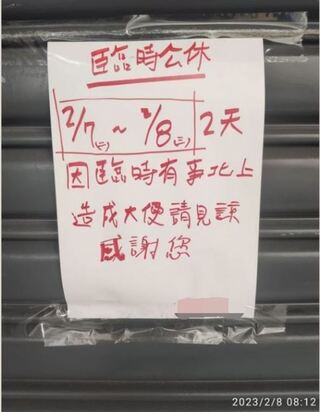 臨時公休
2/7(二)~2/8(三)2天
因臨時有事北上
造成大便請見諒
感謝您
2023/2/8 08:12